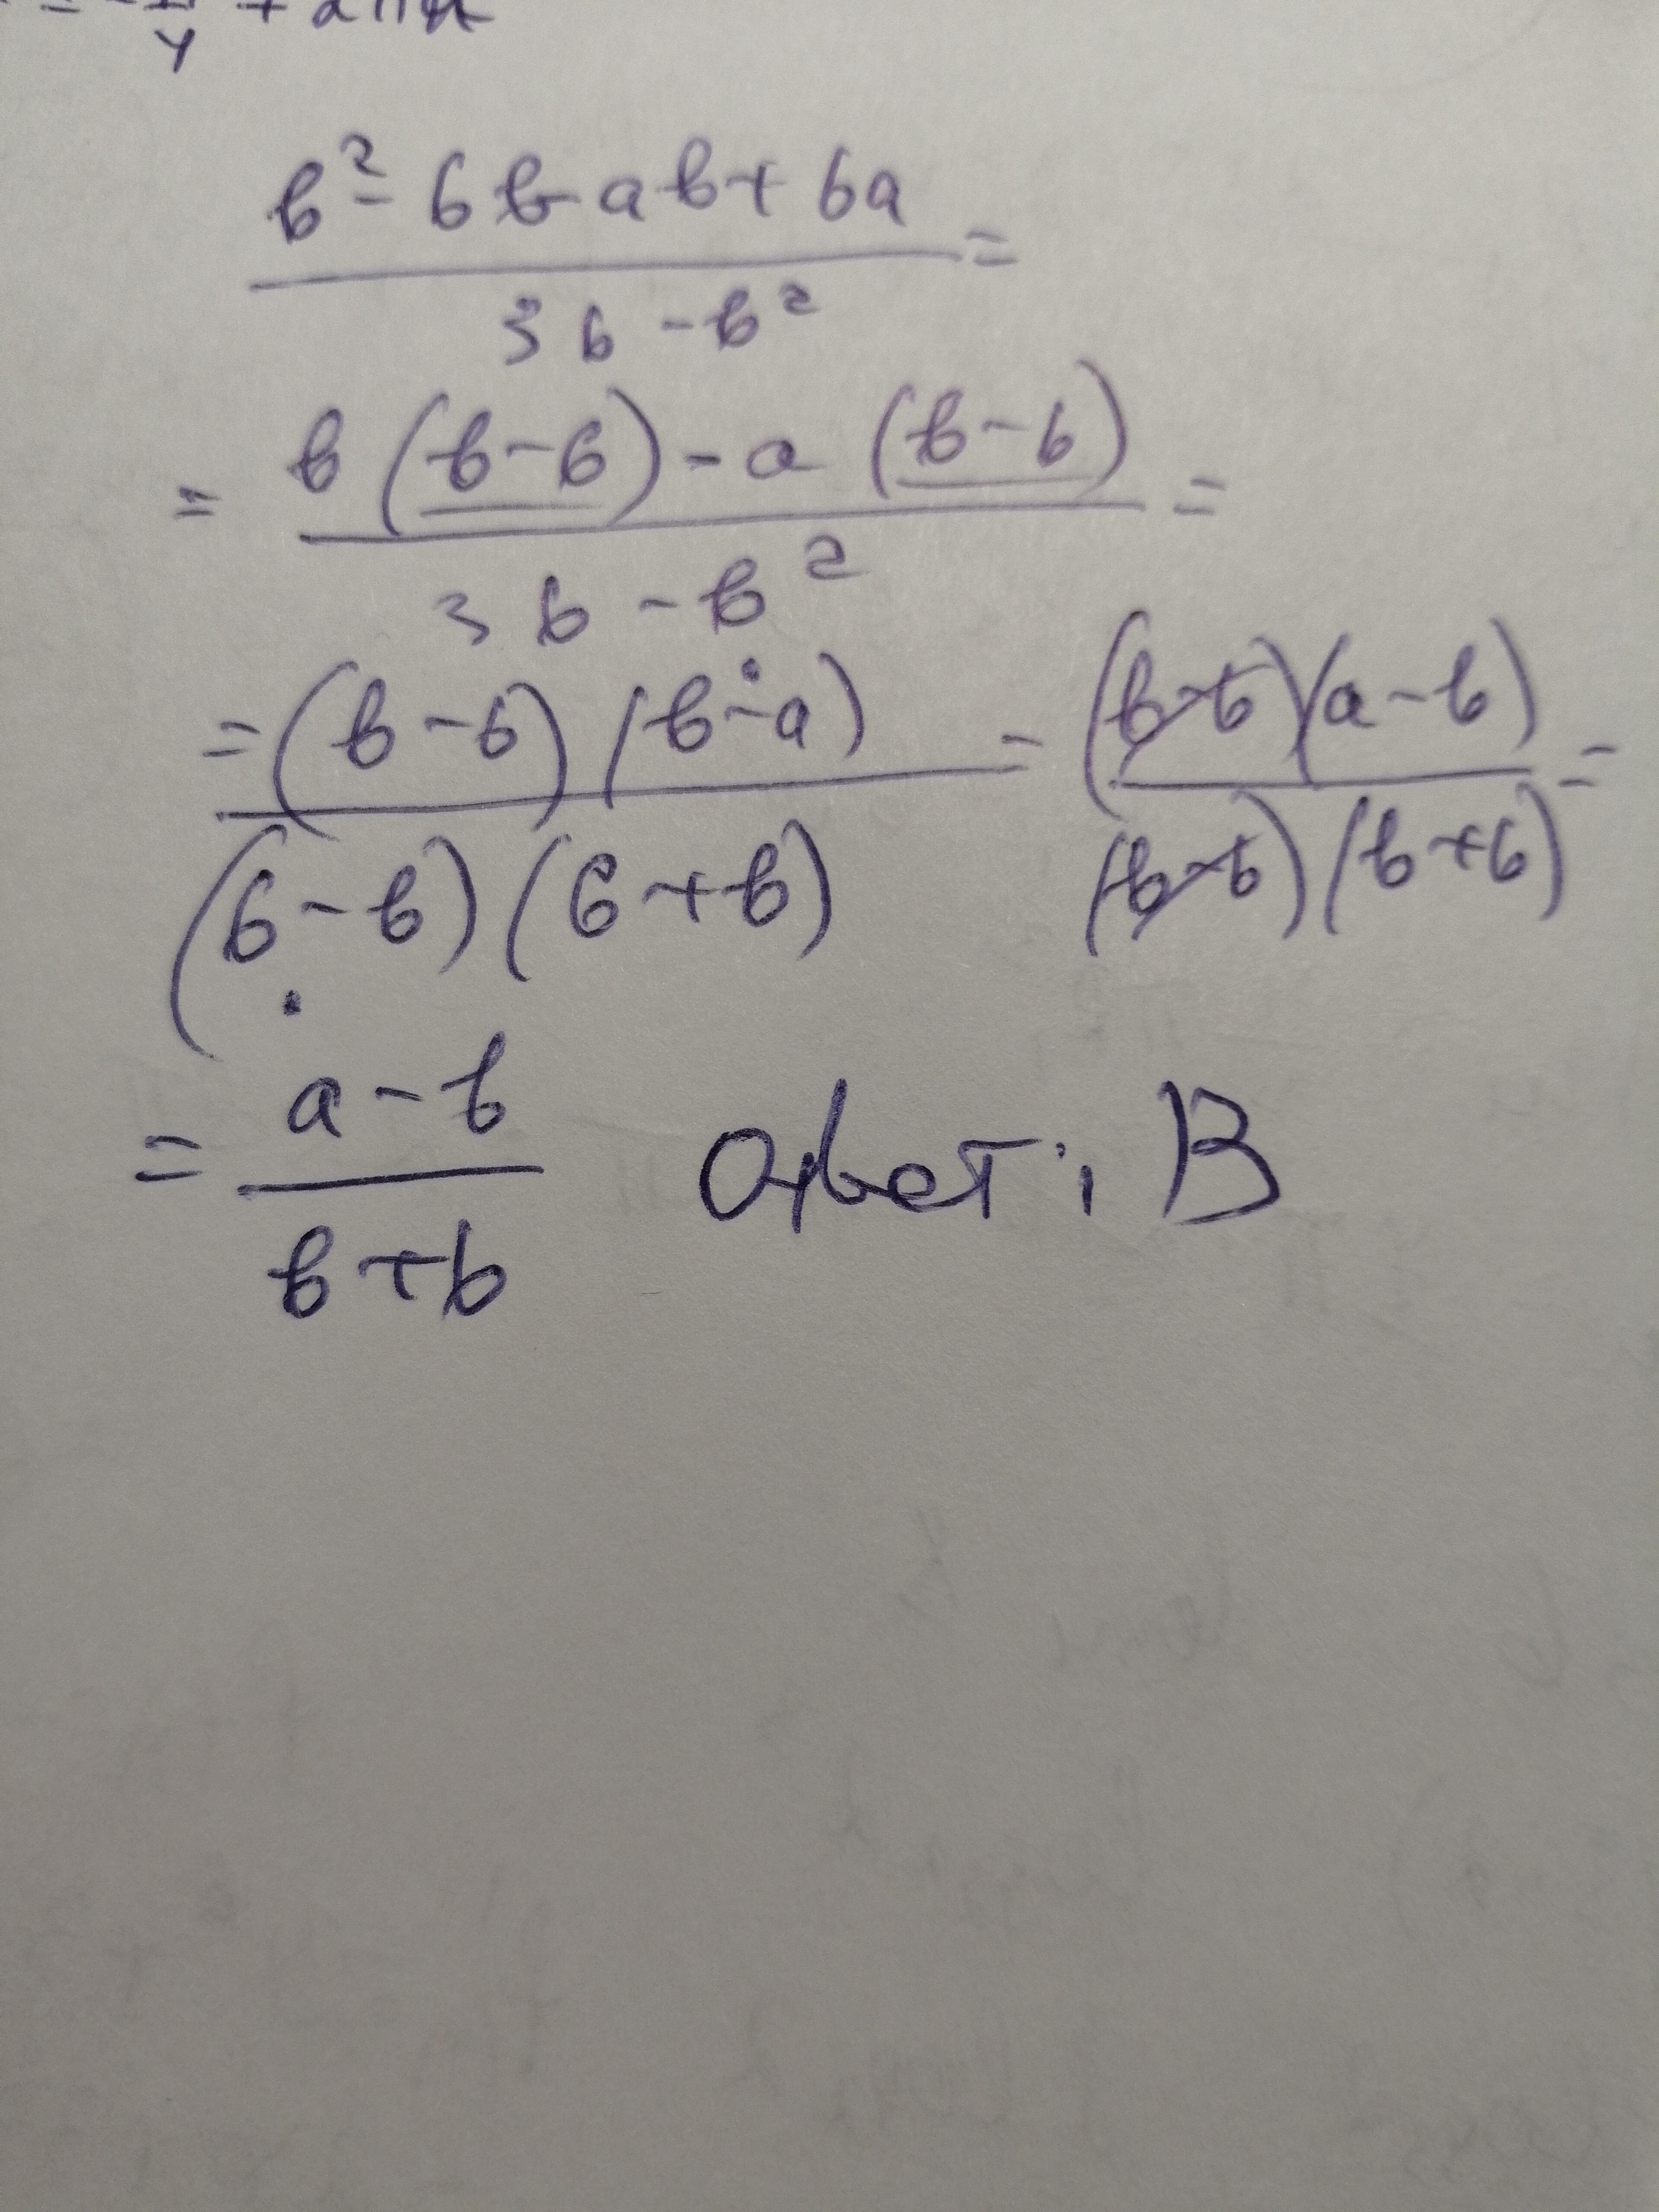 b² - 6b - ab + 6a / 36 - b² =
= b(b - 6) - a(b - 6) / 36 - b² =
= (b - 6)(b - a) / (6 - b)(6 + b) = (b - 6)(a - b) / (b - 6)(b + 6) =
= a - b / b + 6 Ответ: B